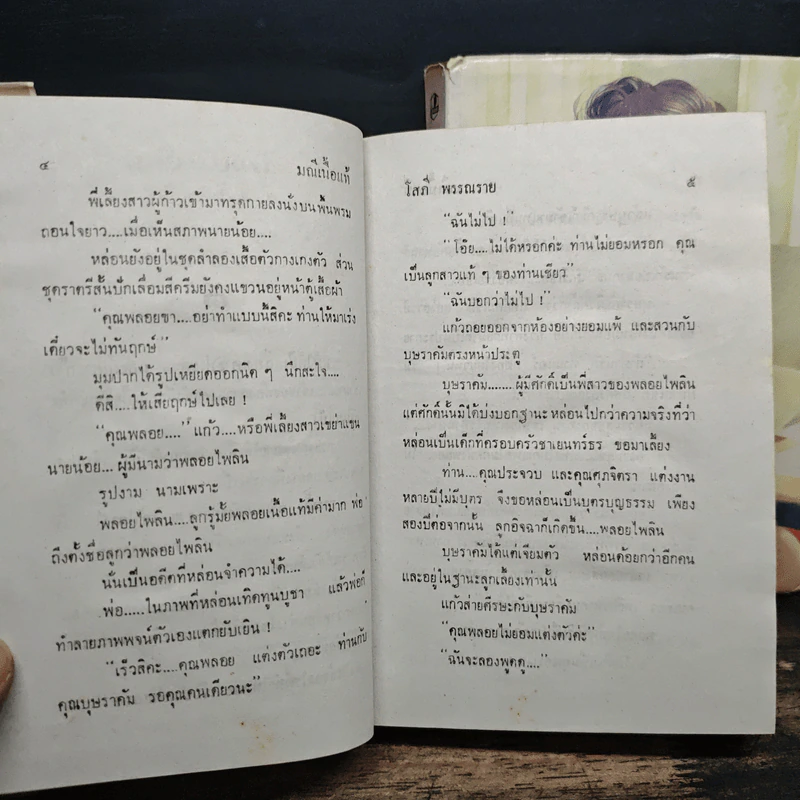 ๔
มณีเนื้อแท้
พี่เลี้ยงสาวผู้ก้าวเข้ามาทรุดกายลงนั่งบนพื้นพรม
ถอนใจยาว....เมื่อเห็นสภาพนายน้อย....
หล่อนยังอยู่ในชุดลำลองเสื้อตัวกางเกงตัว ส่วน
ชุดราตรีสั้นปักเลื่อมสีครีมยังคงแขวนอยู่หน้าตู้เสื้อผ้า
“คุณพลอยขา....อย่าทำแบบนี้สิคะ ท่านให้มาเร่ง
เดี๋ยวจะไม่ทันฤกษ์”
มุมปากได้รูปเหยียดออกนิด ๆ นึกสะใจ....
ดีสิ....ให้เสียฤกษ์ไปเลย !
“คุณพลอย....” แก้ว....หรือพี่เลี้ยงสาวเขย่าแขน
นายน้อย... ผู้มีนามว่าพลอยไพลิน
รูปงาม นามเพราะ
พลอยไพลิน....ลูกรู้มั้ยพลอยเนื้อแท้มีค่ามาก พ่อ
ถึงตั้งชื่อลูกว่าพลอยไพลิน
นั่นเป็นอดีตที่หล่อนจำความได้....
พ่อ.....ในภาพที่หล่อนเทิดทูนบูชา แล้วพ่อก็
ทำลายภาพพจน์ตัวเองแตกยับเยิน !
“เร็วสิคะ....คุณพลอย แต่งตัวเถอะ ท่านกับ
คุณบุษราคัม รอคุณคนเดียวนะ”
โสภี พรรณราย
๕
“ฉันไม่ไป !”
“โอ๊ย....ไม่ได้หรอกค่ะ ท่านไม่ยอมหรอก คุณ
เป็นลูกสาวแท้ ๆ ของท่านเชียว”
“ฉันบอกว่าไม่ไป !”
แก้วถอยออกจากห้องอย่างยอมแพ้ และสวนกับ
บุษราคัมตรงหน้าประตู
บุษราคัม.......ผู้มีศักดิ์เป็นพี่สาวของพลอยไพลิน
แต่ศักดิ์นั้นมิได้บ่งบอกฐานะ หล่อนไปกว่าความจริงที่ว่า
หล่อนเป็นเด็กที่ครอบครัวชาเยนทร์ธร ขอมาเลี้ยง
ท่าน....คุณประจวบ และคุณศุภจิตรา แต่งงาน
หลายปีไม่มีบุตร จึงขอหล่อนเป็นบุตรบุญธรรม เพียง
สองปีต่อจากนั้น ลูกอิจฉาก็เกิดขึ้น....พลอยไพลิน
บุษราคัมได้แต่เจียมตัว หล่อนด้อยกว่าอีกคน
และอยู่ในฐานะลูกเลี้ยงเท่านั้น
แก้วส่ายศีรษะกับบุษราคัม
“คุณพลอยไม่ยอมแต่งตัวค่ะ”
“ฉันจะลองพูดดู....”